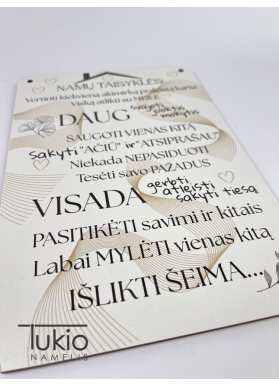 NAMŲ TAISYKLĖS
Vertinti kiekvieną akimirką praleistą kartu
Viską atlikti su MEILE
DAUG svajoti juoktis mokytis
SAUGOTI VIENAS KITĄ
sakyti "AČIŪ" ir "ATSIPRAŠAU"
Niekada NEPASIDUOTI
Tesėti savo PAŽADUS
VISADA gerbti atleisti sakyti tiesą
PASITIKĖTI savimi ir kitais
Labai MYLĖTI vienas kitą
IŠLIKTI ŠEIMA...
Tukio
NAMELIS